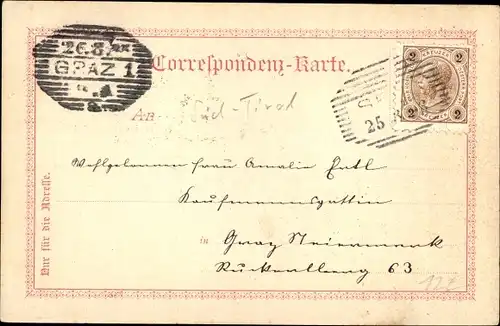 26.8
GRAZ 1
Correspondenz-Karte.
2 KREUZER 2
25
An
Süd-Tirol
Wohlgeboren Frau Amalie Ertl
Kaufmannsgattin
in Graz Steiermark
Ruckerlberg 63
Nur für die Adresse.